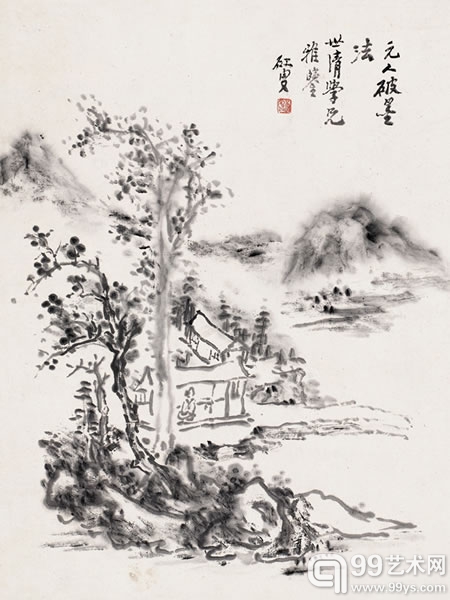 元人破墨
法
世清學兄
雅鑒
虹叟
99艺术网
www.99ys.com